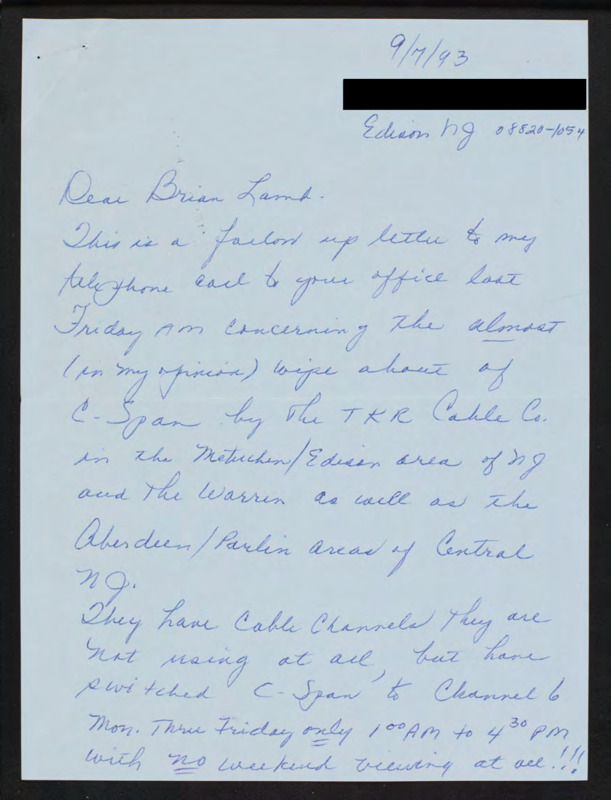 9/7/93
Edison NJ 08820-1054
Dear Brian Lamb.
This is a follow up letter to my
telephone call to your office last
Friday AM concerning the almost
(in my opinion) wipe about of
C-Span by the TKR Cable Co.
in the Metuchen/Edison area of NJ
and the Warren as well as the
Aberdeen/Parlin areas of Central
NJ.
They have Cable Channels they are
not using at all, but have
switched C-Span to Channel 6
Mon. Thru Friday only 1 00 AM to 4 30 PM
with no weekend viewing at all!!!